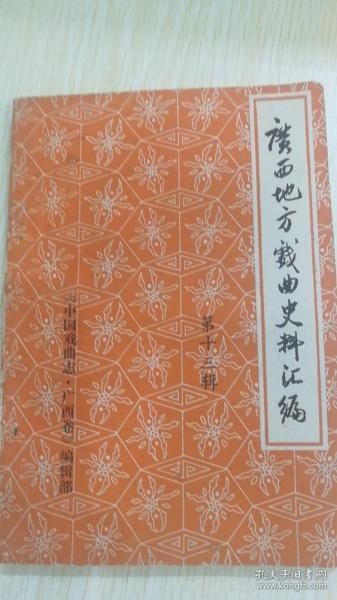 廣西地方戏曲史料汇编
第十三辑
《中国戏曲志·广西卷》编辑部
孔夫子旧书网
www.kongfz.com